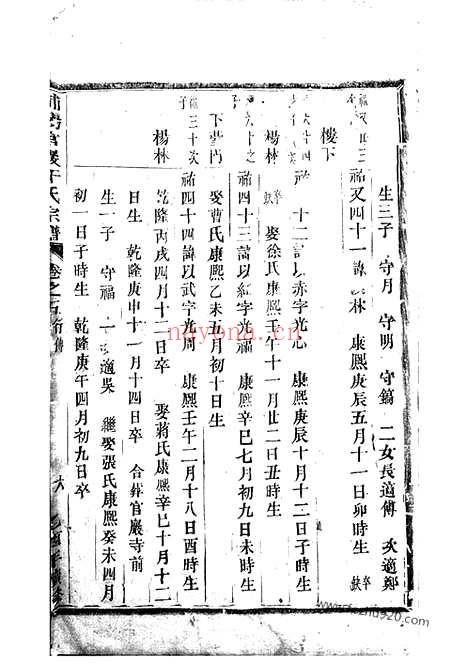 生三子 守月 守明 守鎬 二女長適傅 次適鄭
祐又四十一 林 康熙庚辰五月十一日卯時生 卒缺
樓下
十二 以赤字光 康熙庚辰十月十三日子時生
楊林 卒缺 娶徐氏康熙壬午十一月廿二日丑時生
祐四十三諱以紅字光福 康熙辛巳七月初九日未時生
娶曹氏康熙乙未五月初十日生
三十次子 祐四十四諱以武字光周 康熙壬午二月十八日酉時生
楊林 乾隆丙戌四月十二日卒 娶蔣氏康熙辛巳十月十二
日生 乾隆庚申十一月十四日卒 合葬官巖寺前
生一子 守福 一女適吳 繼娶張氏康熙癸未四月
初一日子時生 乾隆庚午四月初九日卒
官巖于氏宗譜 卷之
nayona.cn